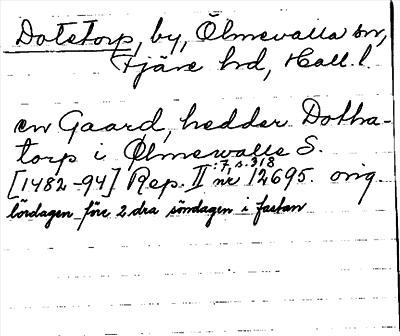 Dotstorp, by, Ölmevalla sn,
Fjäre hd, Hall. l.
en Gaard, hedder Dotha-
torp i Ølmewalle S.
[1482-94] Rep. II :7, s. 318 nr 12695. orig.
lördagen före 2dra söndagen i fastan